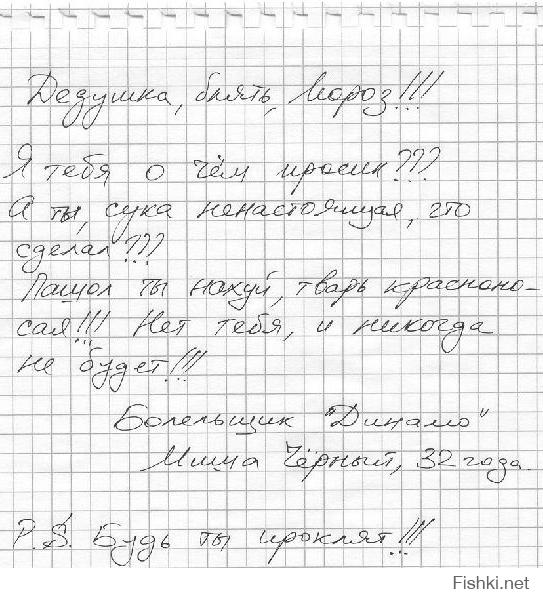 Дедушка, блять, Мороз!!!
Я тебя о чём просил???
А ты, сука ненастоящая, что
сделал???
Пашол ты нахуй, тварь красноно-
сая!!! Нет тебя, и никогда
не будет!!!
Болельщик "Динамо"
Миша Чёрный, 32 года.
P.S. Будь ты проклят!!!
Fishki.net